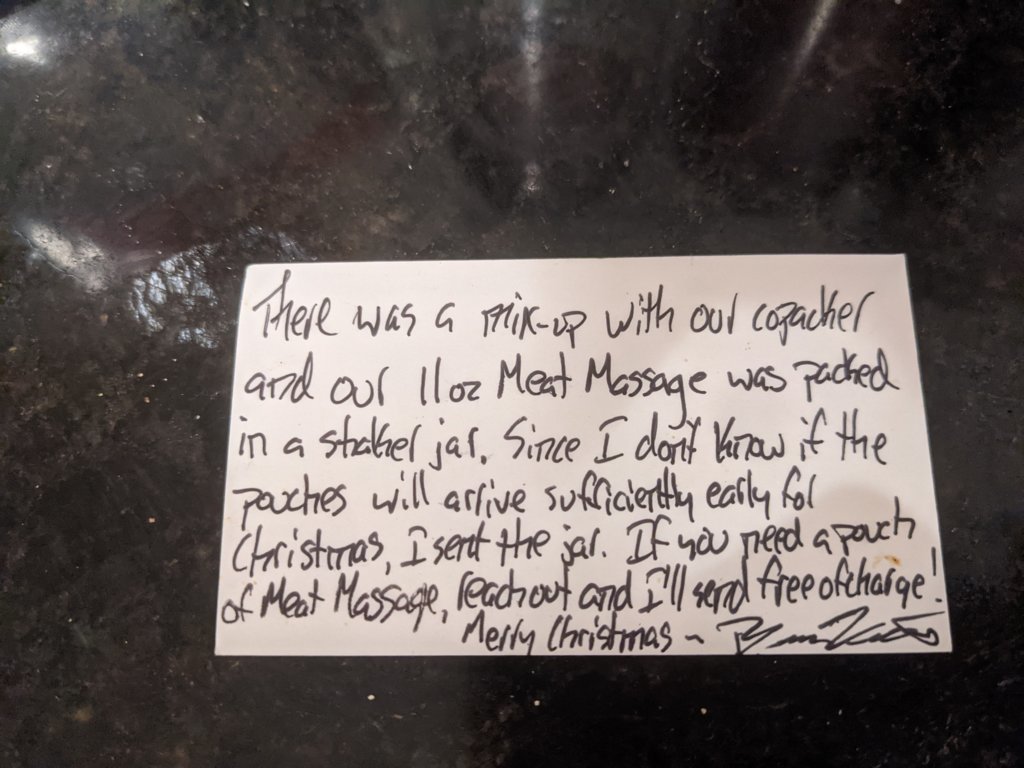 There was a mix-up with our copacker
and our 11oz Meat Massage was packed
in a shaker jar. Since I don't know if the
pouches will arrive sufficiently early for
Christmas, I sent the jar. If you need a pouch
of Meat Massage, reach out and I'll send free of charge!
Merry Christmas ~